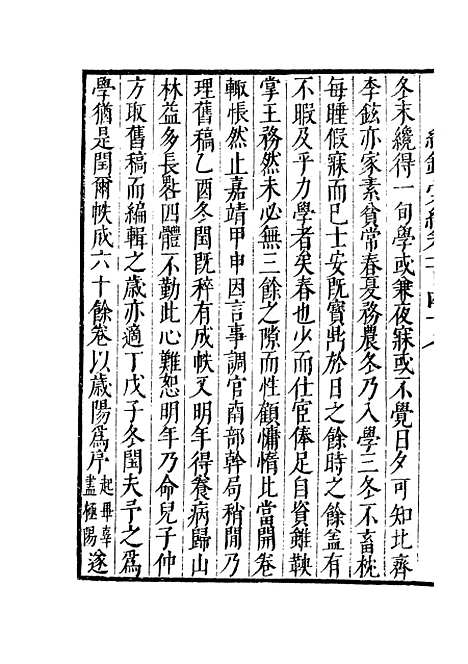 冬末纔得一旬學或兼夜寐或不覺日夕可知比齊
李鉉亦家素貧常春夏務農冬乃入學三冬不畜枕
每睡假寐而已士安既實此於日之餘時之餘盖有
不暇及乎力學者矣春也少而仕宦俸足自資雖鞅
掌王務然未必無三餘之隙而性顧慵惰比當開卷
輙悵然止嘉靖甲申因言事調官南部幹局稍閒乃
理舊稿乙酉冬閏既稡有成帙又明年得養病歸山
林益多長晷四體不勤此心難恕明年乃命兒子仲
方取舊稿而編輯之歲亦適丁戊子冬閏夫予之爲
學猶是閏爾帙成六十餘卷以歲陽爲序起畢辜盡極陽遂